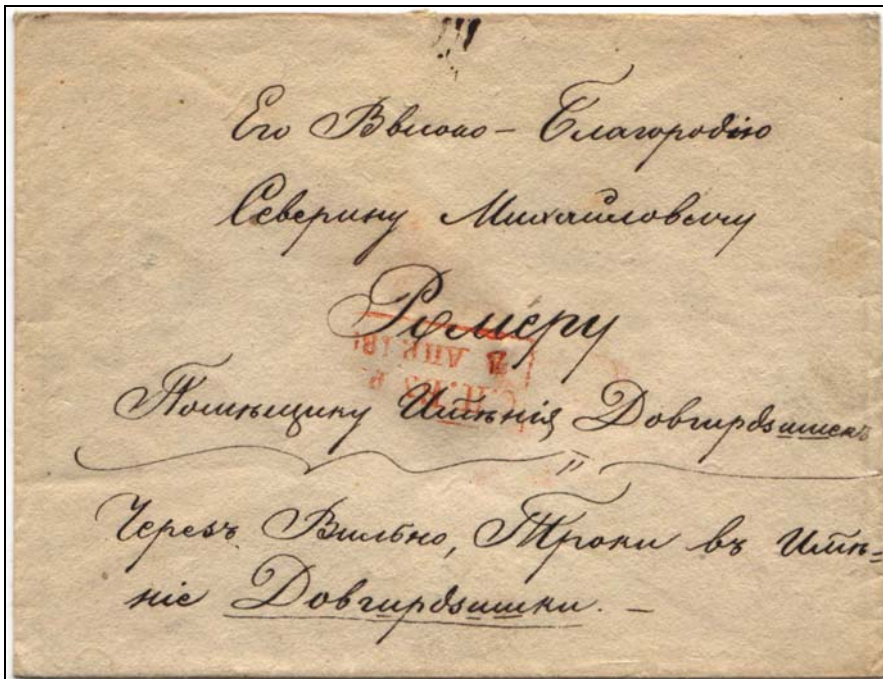 Его Высоко-Благородію
Северину Михайловичу
Ромеру
Помѣщику Имѣнія Довгирдзишекъ
Черезъ Вильно, Троки въ Имѣ=
ніе Довгирдзишки. —
АПР. 18